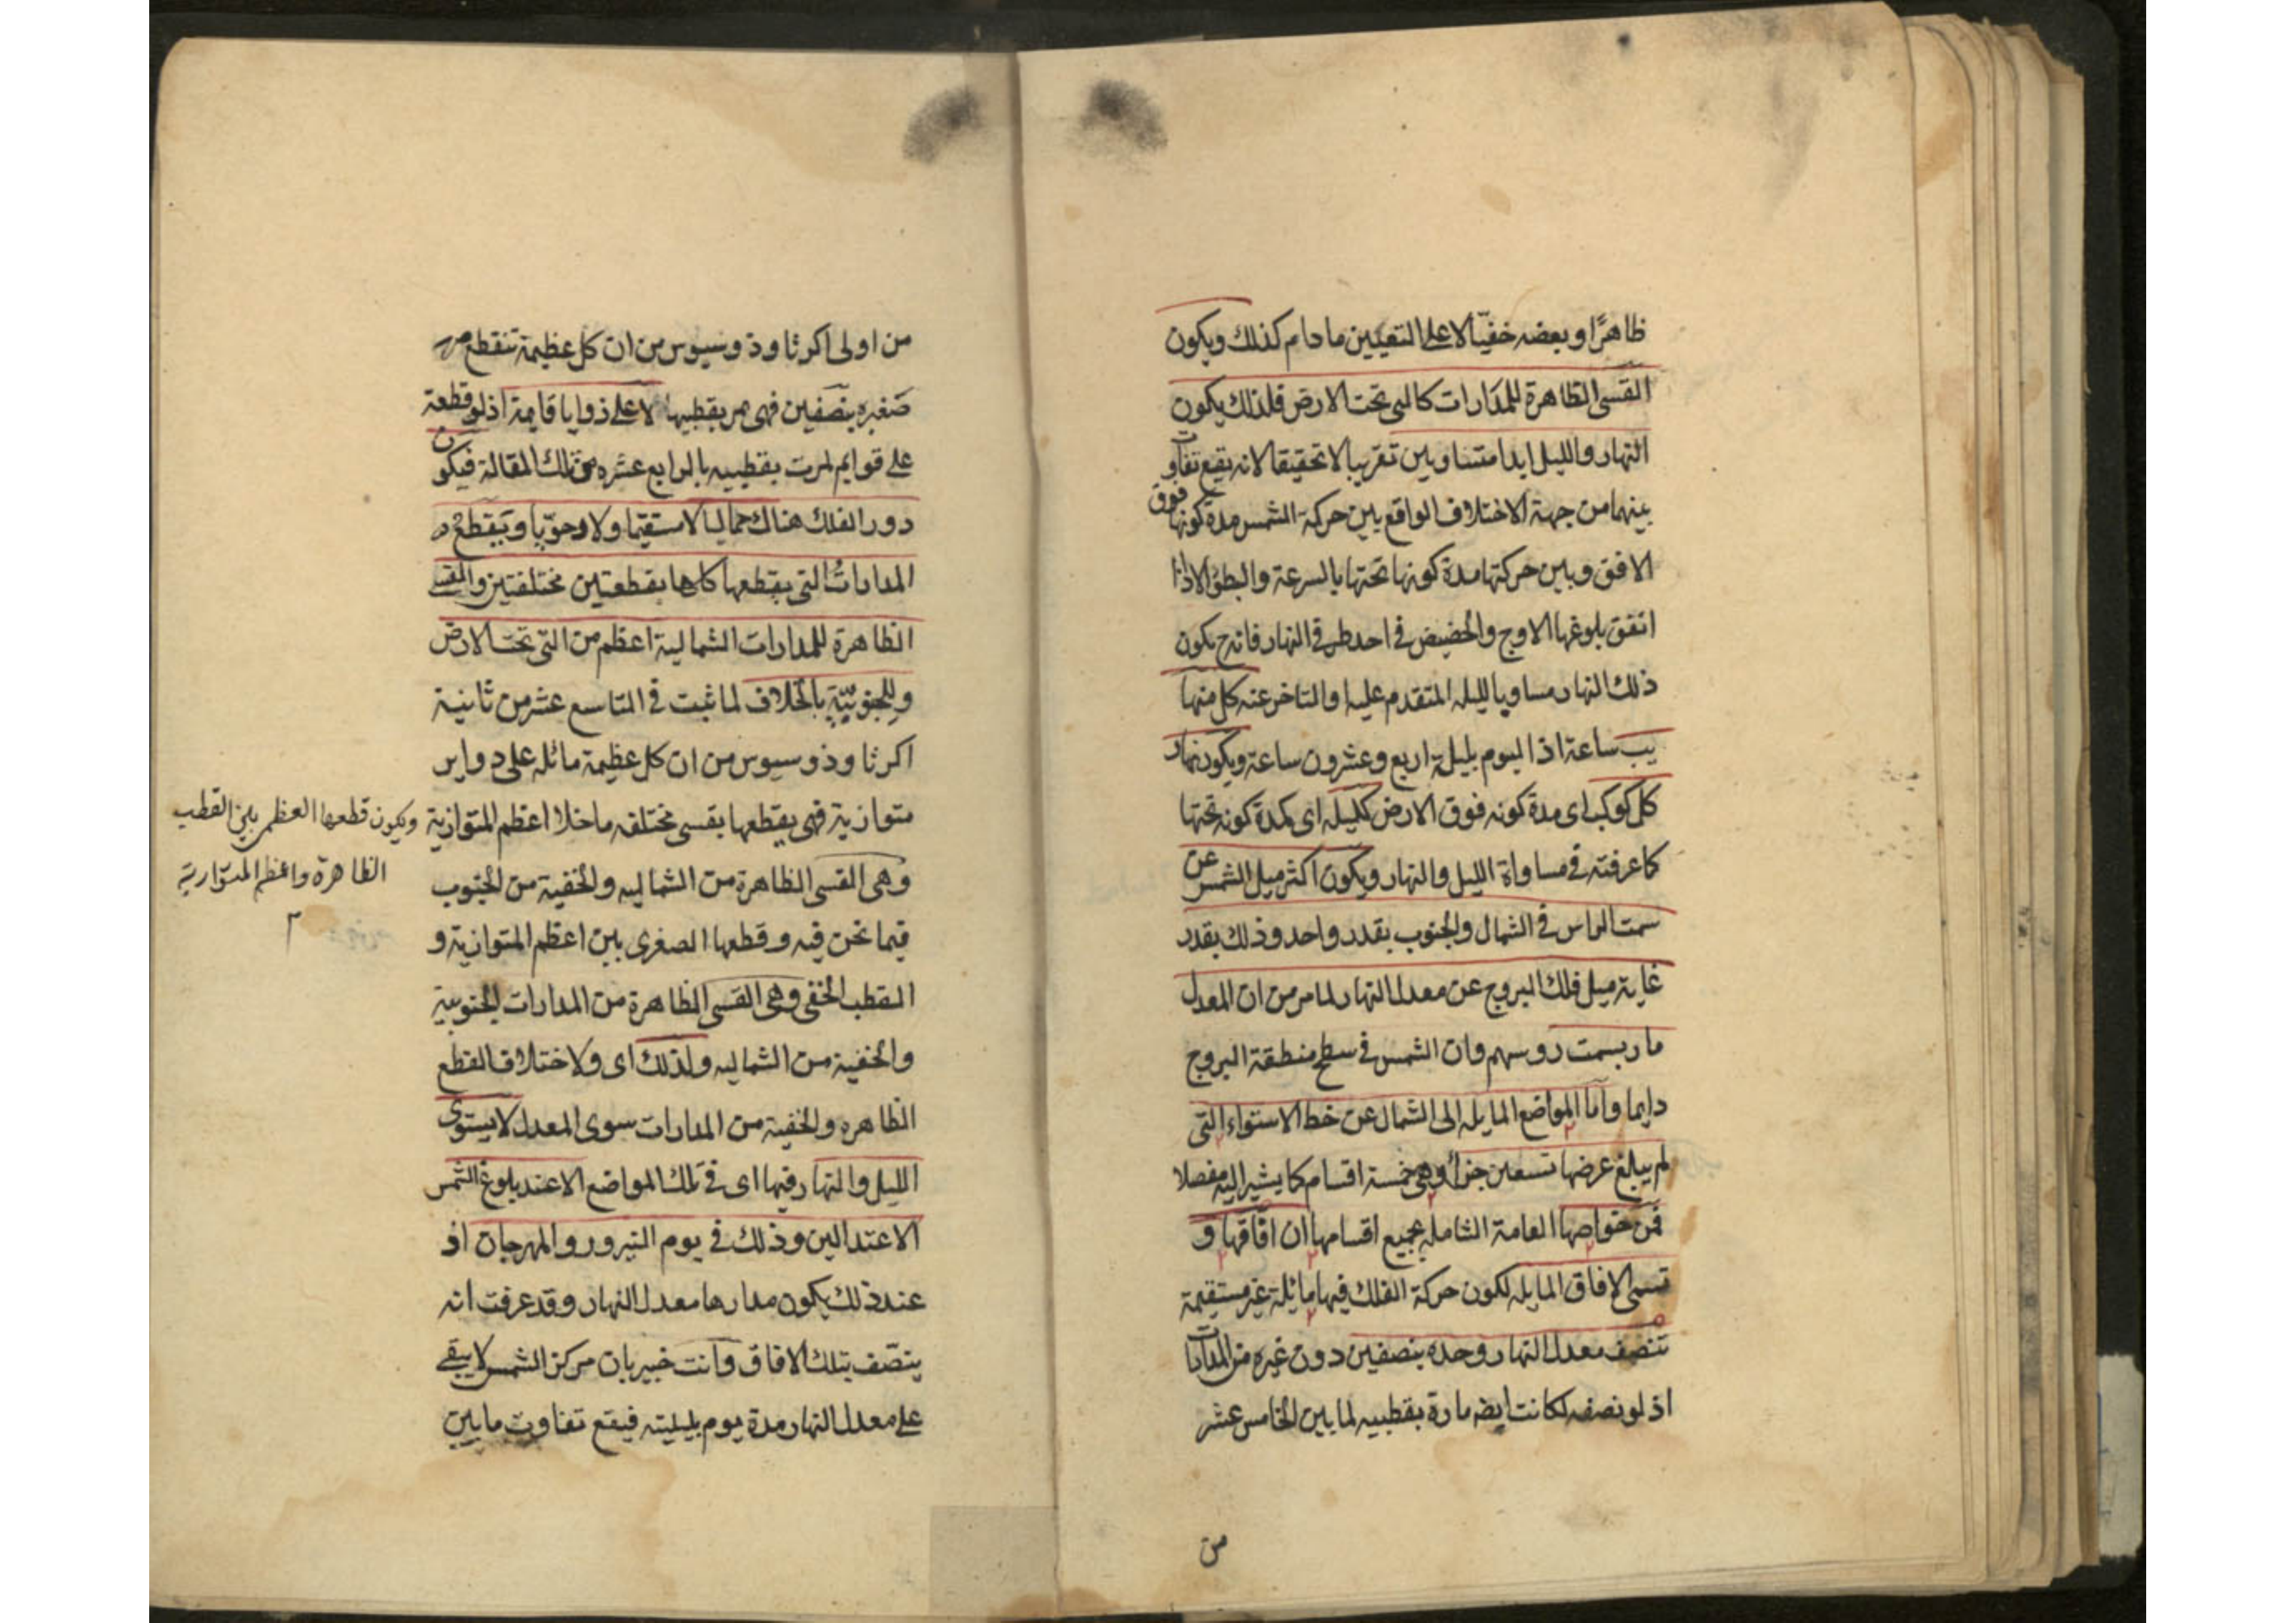 ظاهرًا وبعضه خفيّا لا على التعيين ما دام كذلك ويكون
القسى الظاهرة للمدارات كالتى تحت الارض فلذلك يكون
النهار والليل ابدا متساويين تقريبا لا تحقيقا لانه يقع تفاوت
بينهما من جهة الاختلاف الواقع بين حركة الشمس مدة كونها فوق
الافق وبين حركتها مدة كونها تحتها بالسرعة والبطؤ الا اذا
اتفق بلوغها الاوج والحضيض فى احد طرفى النهار فانه ح يكون
ذلك النهار مساويا لليله المتقدم عليه والمتاخر عنه كل منها
يب ساعة اذ اليوم بليلة اربع وعشرون ساعة ويكون نهار
كل كوكب اى مدة كونه فوق الارض كليله اى كمدة كونه تحتها
كما عرفته فى مساواة الليل والنهار ويكون اكثر ميل الشمس عن
سمت الراس فى الشمال والجنوب بقدر واحد وذلك بقدر
غاية ميل فلك البروج عن معدل النهار لما مر من ان المعدل
مار بسمت روسهم وان الشمس فى سطح منطقة البروج
دايما واما المواضع المايله الى الشمال عن خط الاستواء التى
لم يبلغ عرضها تسعين جزأ وهى خمسة اقسام كما يشير اليه مفصلا
فمن خواصها العامة الشامله لجميع اقسامها ان افاقها و
تسمى الافاق المايله لكون حركة الفلك فيها مائلة غير مستقيمة
تنصف معدل النهار وحده بنصفين دون غيره من المدارات
اذ لو نصفه لكانت ايضه مارة بقطبيه لما بين الخامس عشر
من
من اولى اكر ثاوذوسيوس من ان كل عظيمة تنقطع
صغيره بنصفين فهى تمر بقطبيها لا على زوايا قايمة اذ لو قطعة
على قوايم لمرت بقطبيه بالرابع عشره من تلك المقالة فيكون
دور الفلك هناك حماليا لا مستقيما ولا رحويا وتقطع
المدارات التى يقطعها كلها بقطعتين مختلفتين والقسى
الظاهرة للمدارات الشمالية اعظم من التى تحت الارض
وللجنوبيّة بالخلاف لما ثبت فى التاسع عشر من ثانية
اكر ثاوذوسيوس من ان كل عظيمة مائله على دواير
متوازية فهى يقطعها بقسى مختلفه ما خلا اعظم المتوازية
ويكون قطعها العظمى بين القطب
الظاهرة واعظم المتوازية
وهى القسى الظاهرة من الشماليه والخفية من الجنوب
فيما نحن فيه وقطعها الصغرى بين اعظم المتوازية و
القطب الخفى وهى القسى الظاهرة من المدارات الجنوبية
والخفية من الشماليه ولذلك اى ولاختلاف القطع
الظاهره والخفية من المدارات سوى المعدل لا يستوى
الليل والنهار فيها اى فى تلك المواضع الا عند بلوغ الشمس
الاعتدالين وذلك فى يوم النيروز والمهرجان اذ
عند ذلك يكون مدارها معدل النهار وقد عرفت انه
ينصف بتلك الافاق وانت خبير بان مركز الشمس لا يبقى
على معدل النهار مدة يوم بليلته فيقع تفاوت ما بين